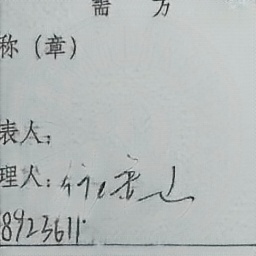 需 方
称（章）
表人：
理人：
8923611